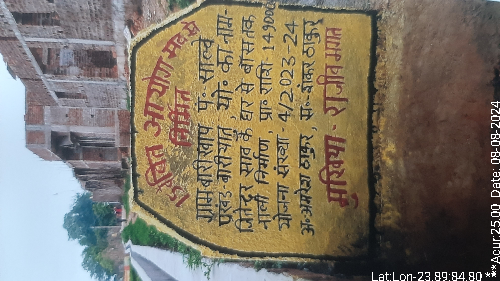 15 वित्त आयोग मद से
निर्मित
ग्राम बारीखाप, पं. साल्वे
प्रखंड बारीयातु, यो. का नाम-
जितेन्द्र साव के घर से बांस तक
नाली निर्माण, प्रा. राशि 149000
योजना संख्या, 4/2023-24
अ. अमरेश ठाकुर, स. शंकर ठाकुर
मुखिया - राजीव भगत
Lat:Lon-23.89:84.80 ***Acur:2500, Date:09-08-2024